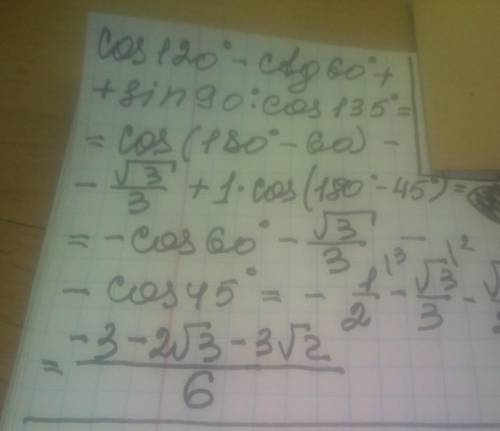 cos120° - ctg60° +
+ sin90° : cos135° =
= cos(180° - 60) -
- √3/3 + 1 · cos(180° - 45°) =
= - cos60° - √3/3 -
- cos45° = - 1/2 |³ - √3/3 |² - √
= (-3 - 2√3 - 3√2)/6